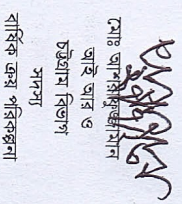 মোঃ আশরাফুজ্জামান
আই আর ও
চট্টগ্রাম বিভাগ
সদস্য
বার্ষিক ক্রয় পরিকল্পনা